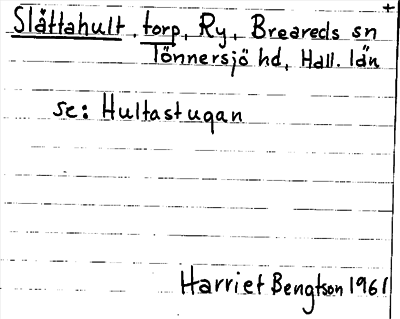 +
Slåttahult, torp, Ry, Breareds sn
Tönnersjö hd, Hall. län
se: Hultastugan
Harriet Bengtson 1961